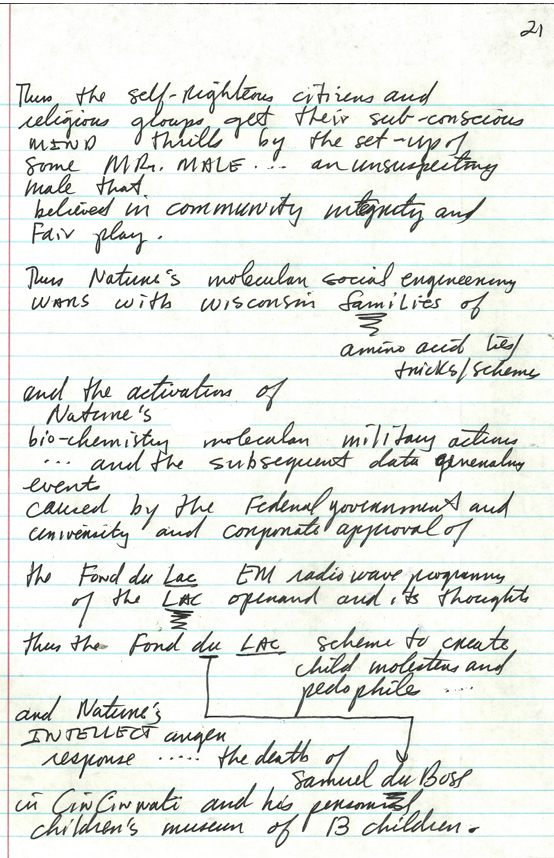 21
Thus the self-righteous citizens and
religious groups get their sub-conscious
MIND thrills by the set-up of
some MR. MALE .... an unsuspecting
male that
believed in community integrity and
Fair play.
Thus Nature's molecular social engineering
WARS with WISCONSIN families of
amino acid lies/
tricks/schemes
and the activation of
Nature's
bio-chemistry molecular military actions
... and the subsequent data
events
caused by the Federal government and
university and corporate approval of
the Fond du Lac EM radio wave programs
of the LAC operand and its thoughts
thus the Fond du LAC scheme to create
child molesters and
pedophiles ....
and Nature's
INTELLECT anger
response ..... the death of
Samuel du Boss
in CinCinnati and his
children's museum of 13 children.